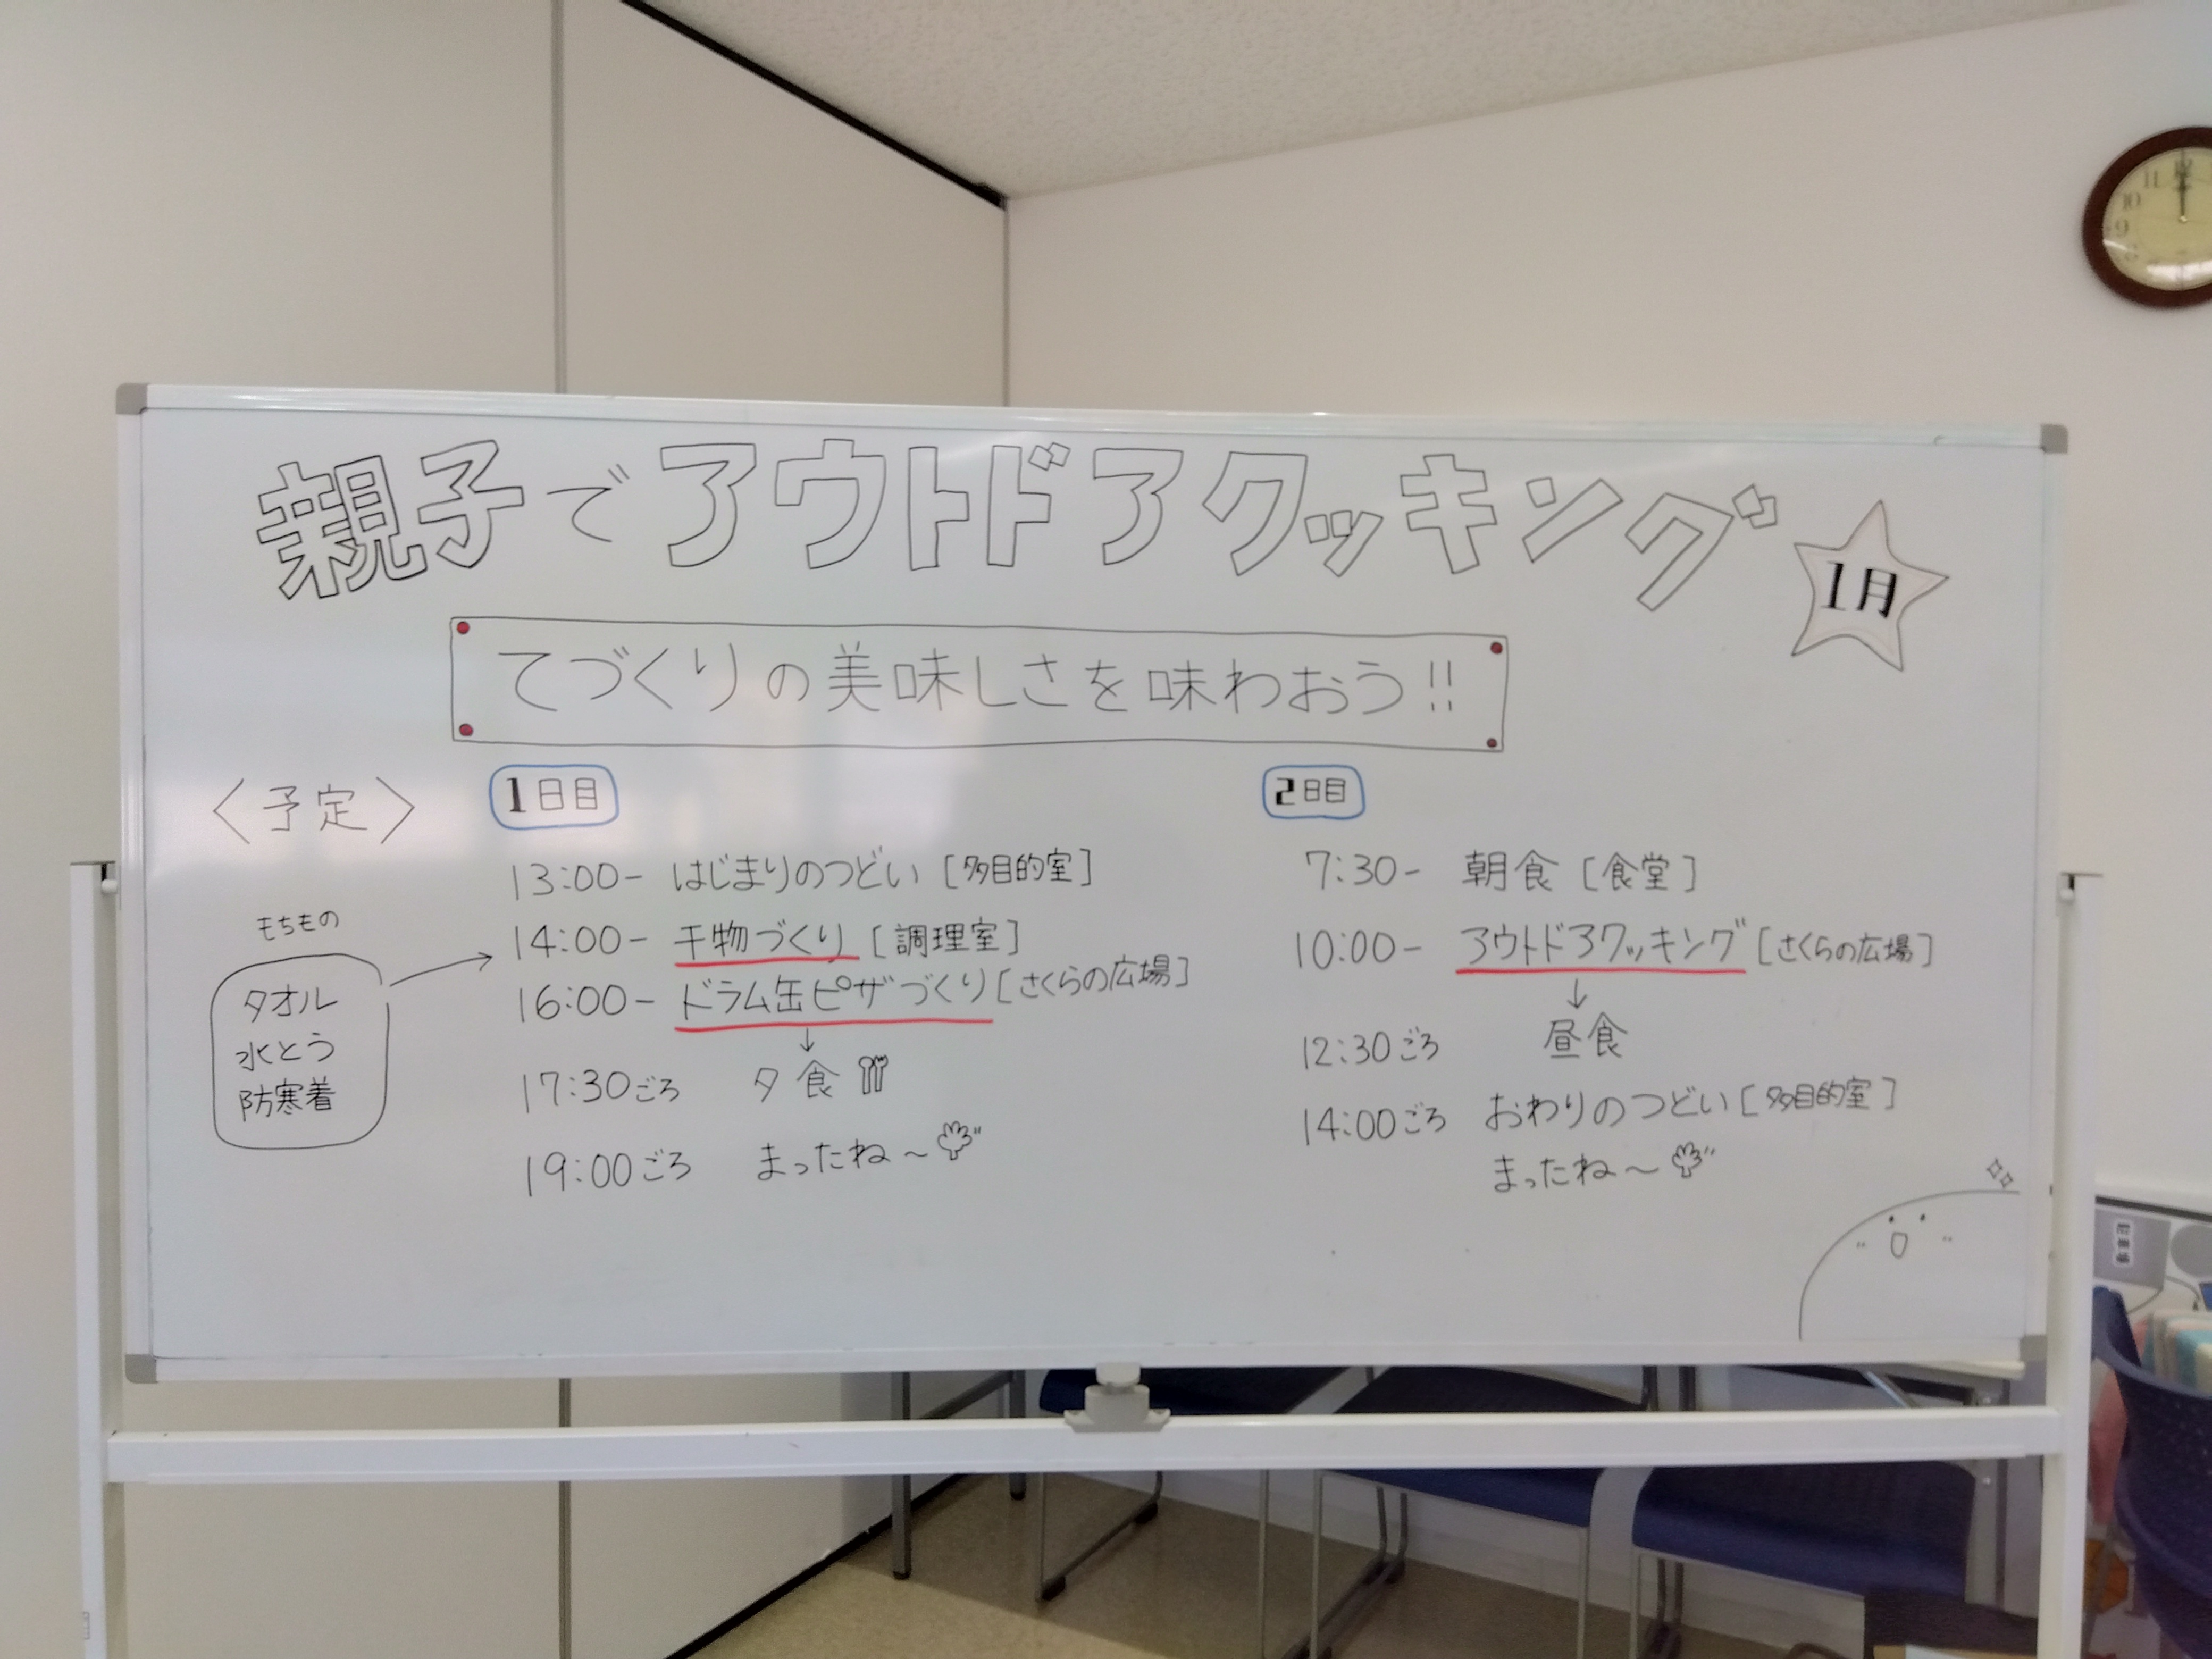 親子でアウトドアクッキング
1月
てづくりの美味しさを味わおう!!
〈予定〉
もちもの
タオル
水とう
防寒着
1日目
13:00- はじまりのつどい [多目的室]
14:00- 干物づくり [調理室]
16:00- ドラム缶ピザづくり [さくらの広場]
↓
17:30ごろ 夕食
19:00ごろ まったね～
2日目
7:30- 朝食 [食堂]
10:00- アウトドアクッキング [さくらの広場]
↓
12:30ごろ 昼食
14:00ごろ おわりのつどい [多目的室]
まったね～
12
11
10
9
8